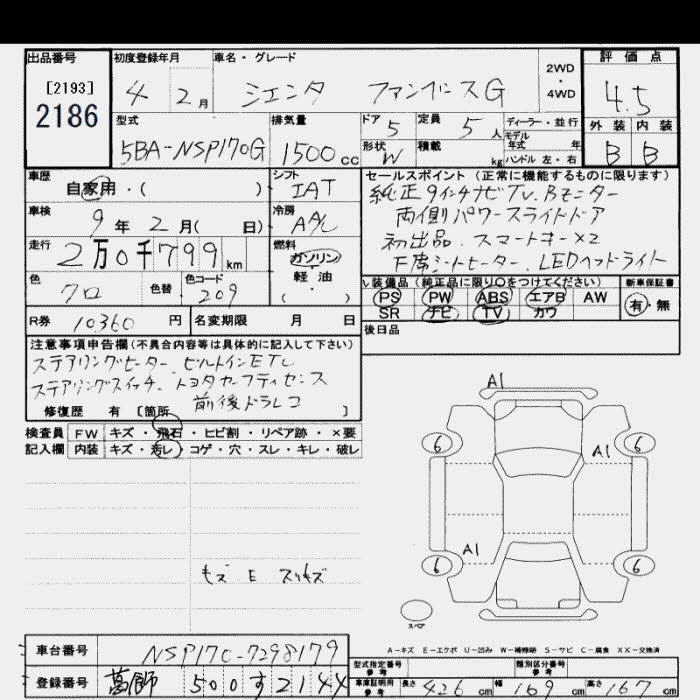 出品番号 初度登録年月 車名・グレード 2WD・4WD 評価点
[2193]
2186
4 2月 シエンタ ファンベースG 4.5
型式 排気量 ドア 5 定員 5人 ディーラー・並行 外装 内装
モデル年式 年
5BA-NSP170G 1500cc 形状 W 積載 kg ハンドル 左・右 B B
車歴 シフト セールスポイント(正常に機能するものに限ります)
自家用・( ) IAT 純正9インチナビTV.Bモニター
車検 冷房 両側パワースライドドア
9年2月( 日) AAC 初出品.スマートキー×2
走行 燃料
2万0千799km ガソリン・軽油・( ) F席シートヒーター.LEDヘッドライト
色 色替 色コード 装備品(純正品に限り○をつけてください) 新車保証書
クロ 209 PS PW ABS エアB AW 有・無
SR ナビ TV カワ
R券 10360円 名変期限 月 日 後日品
注意事項申告欄(不具合内容等は具体的に記入して下さい)
ステアリングヒーター.ビルトインETC
ステアリングスイッチ.トヨタセーフティセンス
前後ドラレコ
修復歴 有 [箇所 ]
検査員 FW キズ・飛石・ヒビ割・リペア跡・×要
記入欄 内装 キズ・汚レ・コゲ・穴・スレ・キレ・破レ
A1
6 A1 6
A1
6 6
スペア
キズ E スリキズ
A-キズ E-エクボ U-凹み W-補修跡 S-サビ C-腐食 XX-交換済
車台番号 NSP170-7298179
型式指定番号 参考 類別区分番号 参考
登録番号 葛飾 500す214X
車庫証明用 参考 長さ 426cm 幅 169cm 高さ 167cm